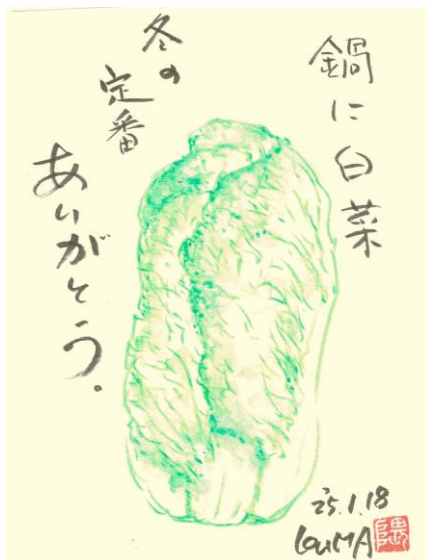 鍋に白菜
冬の
定番
ありがとう。
'25.1.18